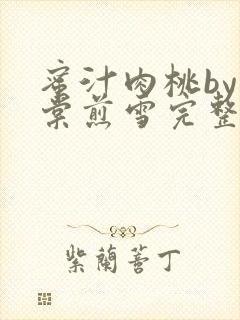 蜜汁肉桃by
棠煎雪完整
紫蘭菩丁